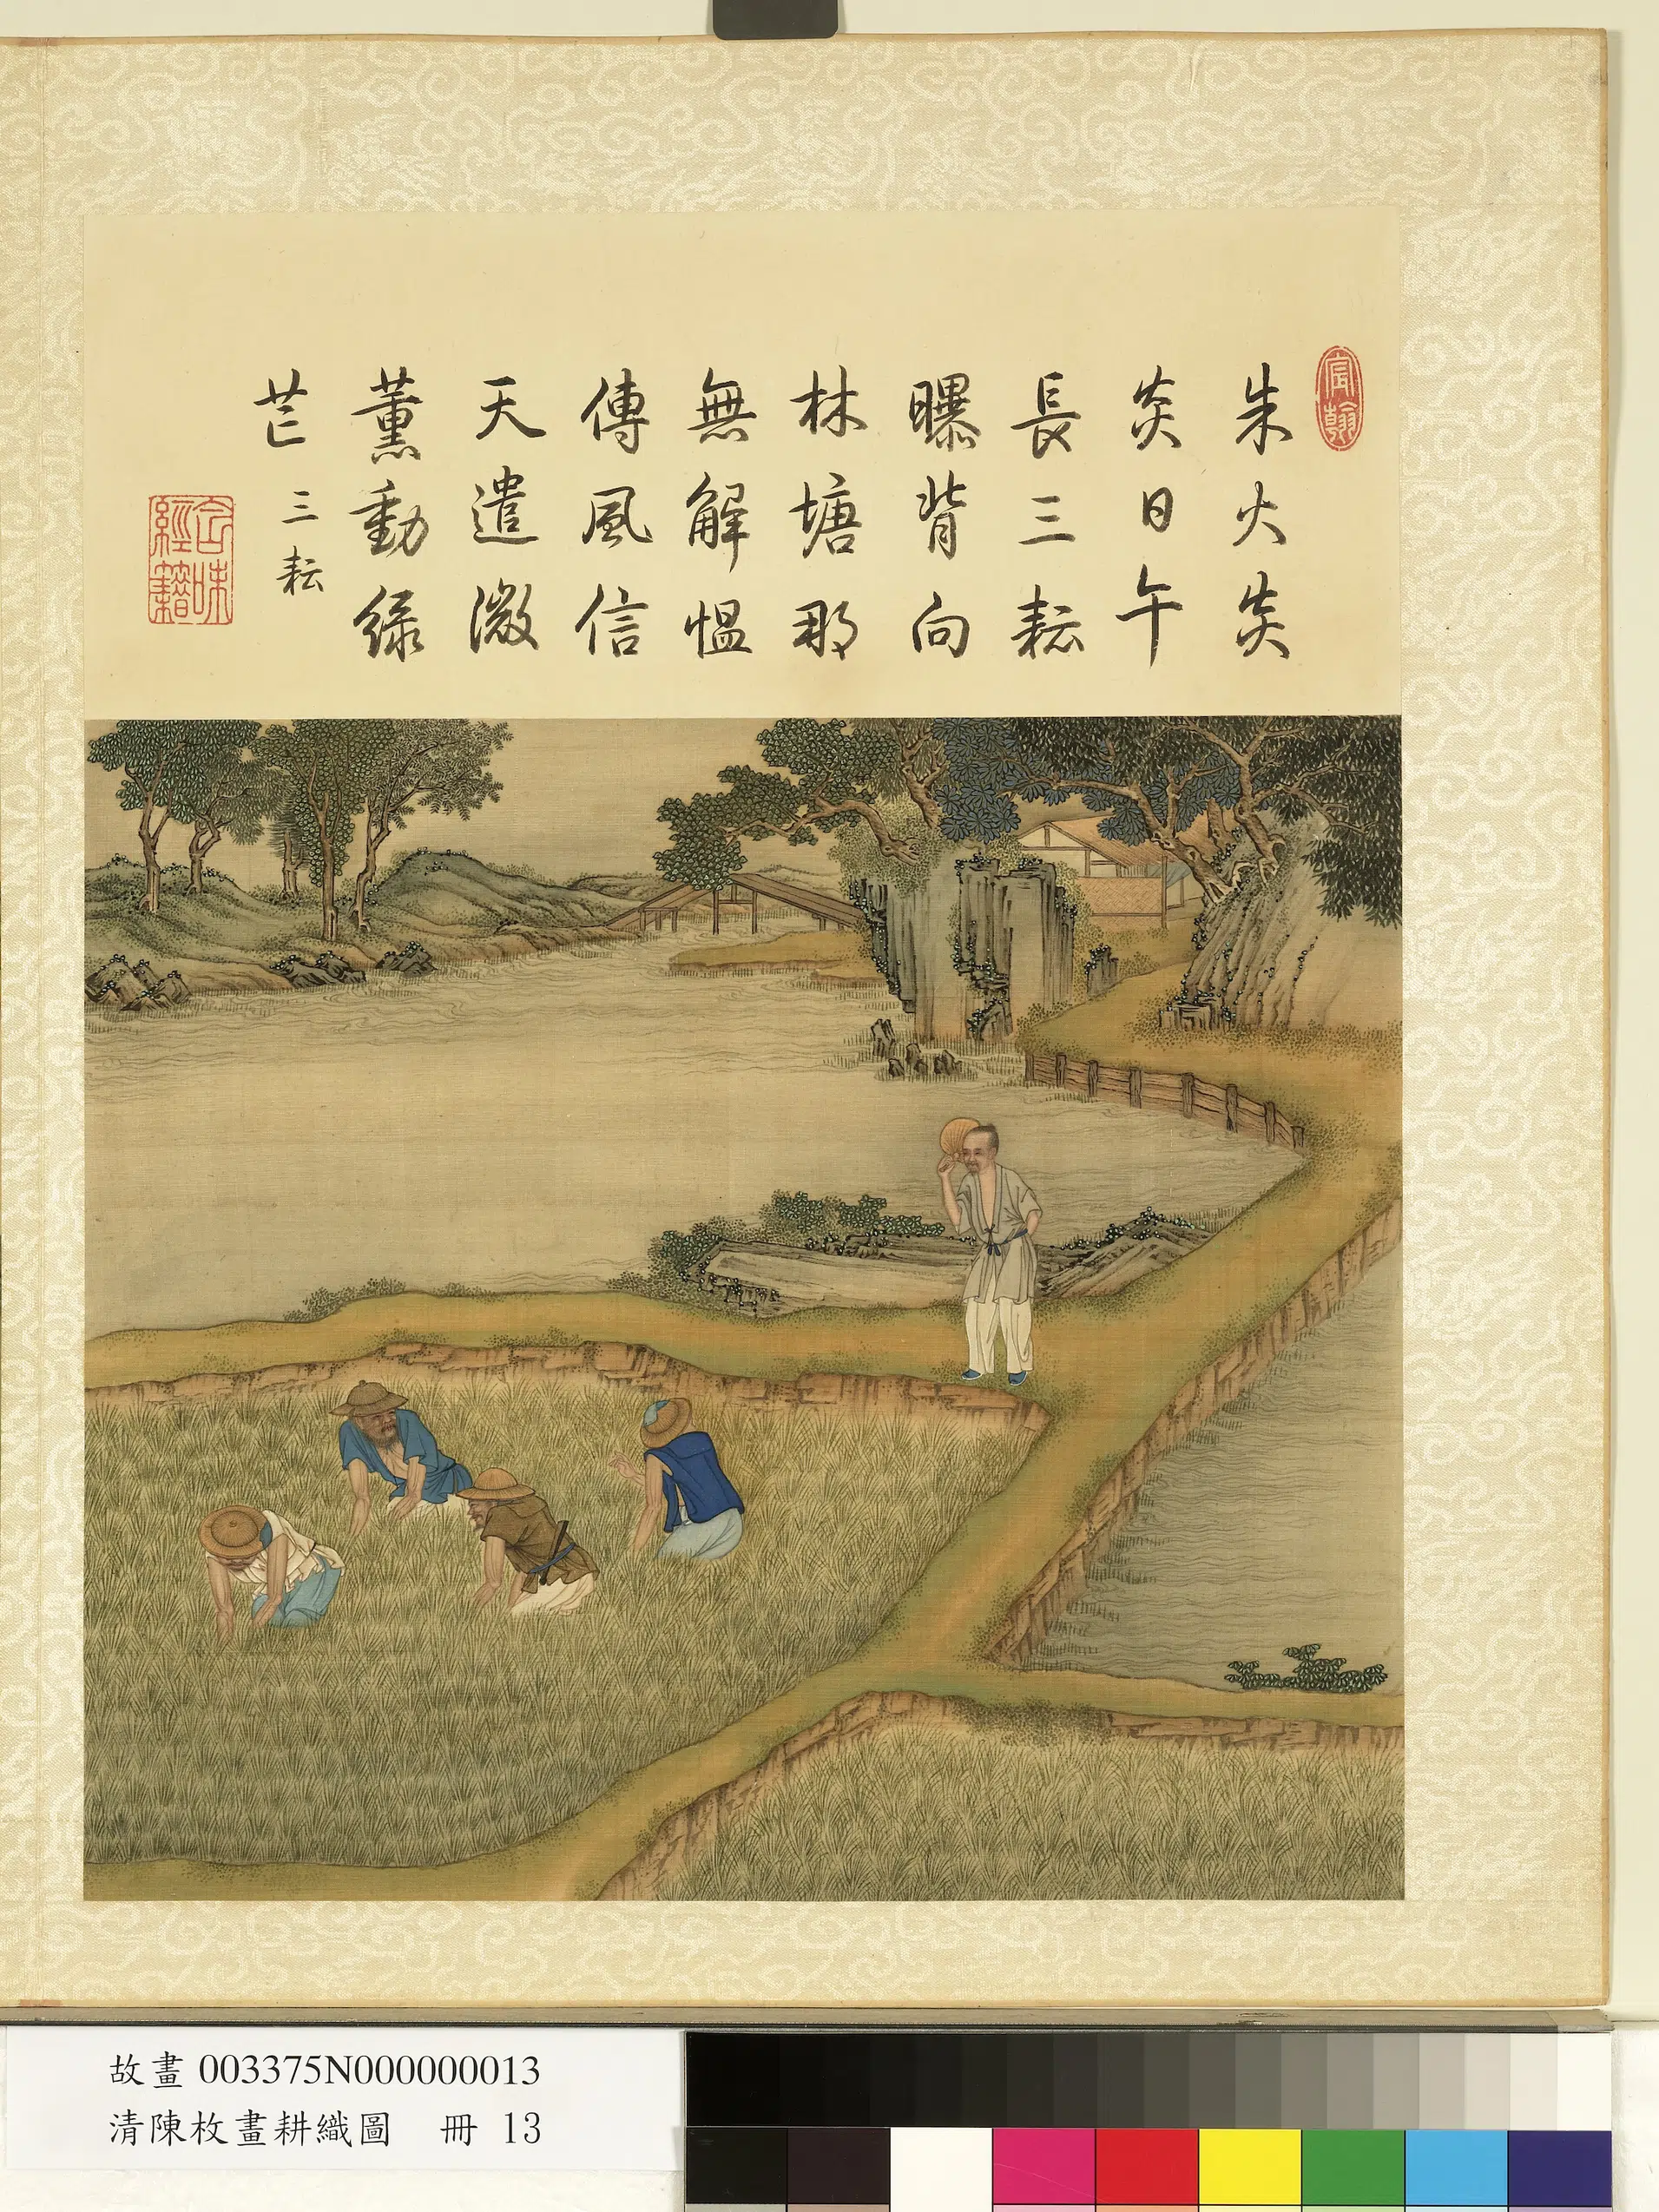 宸翰
朱火炎
炎日午
長三耘
曝背向
林塘那
無解慍
傳風信
天遣微
薰動綠
芒
三耘
含味經籍
故畫 003375N000000013
清陳枚畫耕織圖　冊 13